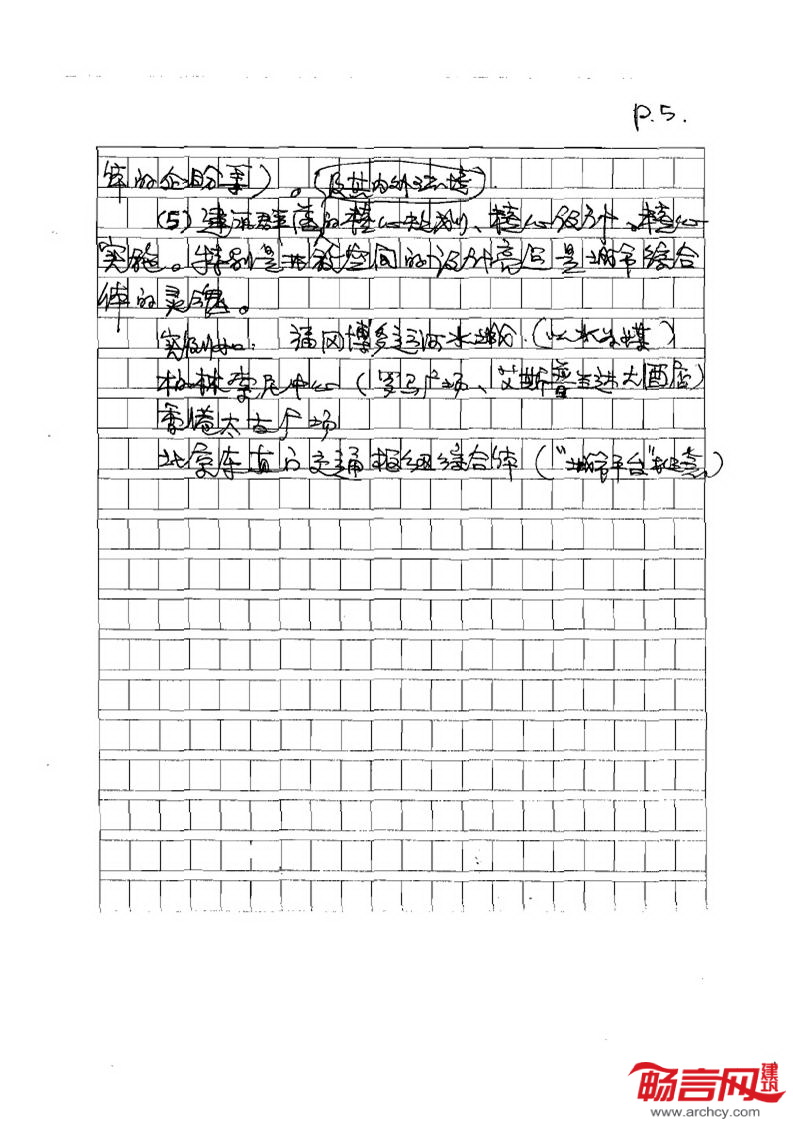 P.5.
体的企盼等)。(及其内外环境)
(5)建筑群落的核心规划、核心设计、核心
实施。特别是共享空间的设计亮点是城市综合
体的灵魂。
实例如:福冈博多运河水城(以水为媒)
柏林索尼中心(罗马广场、艾斯普兰达大酒店)
香港太古广场
北京东直门交通枢纽综合体("城市平台"概念)
畅言网 建筑
www.archcy.com